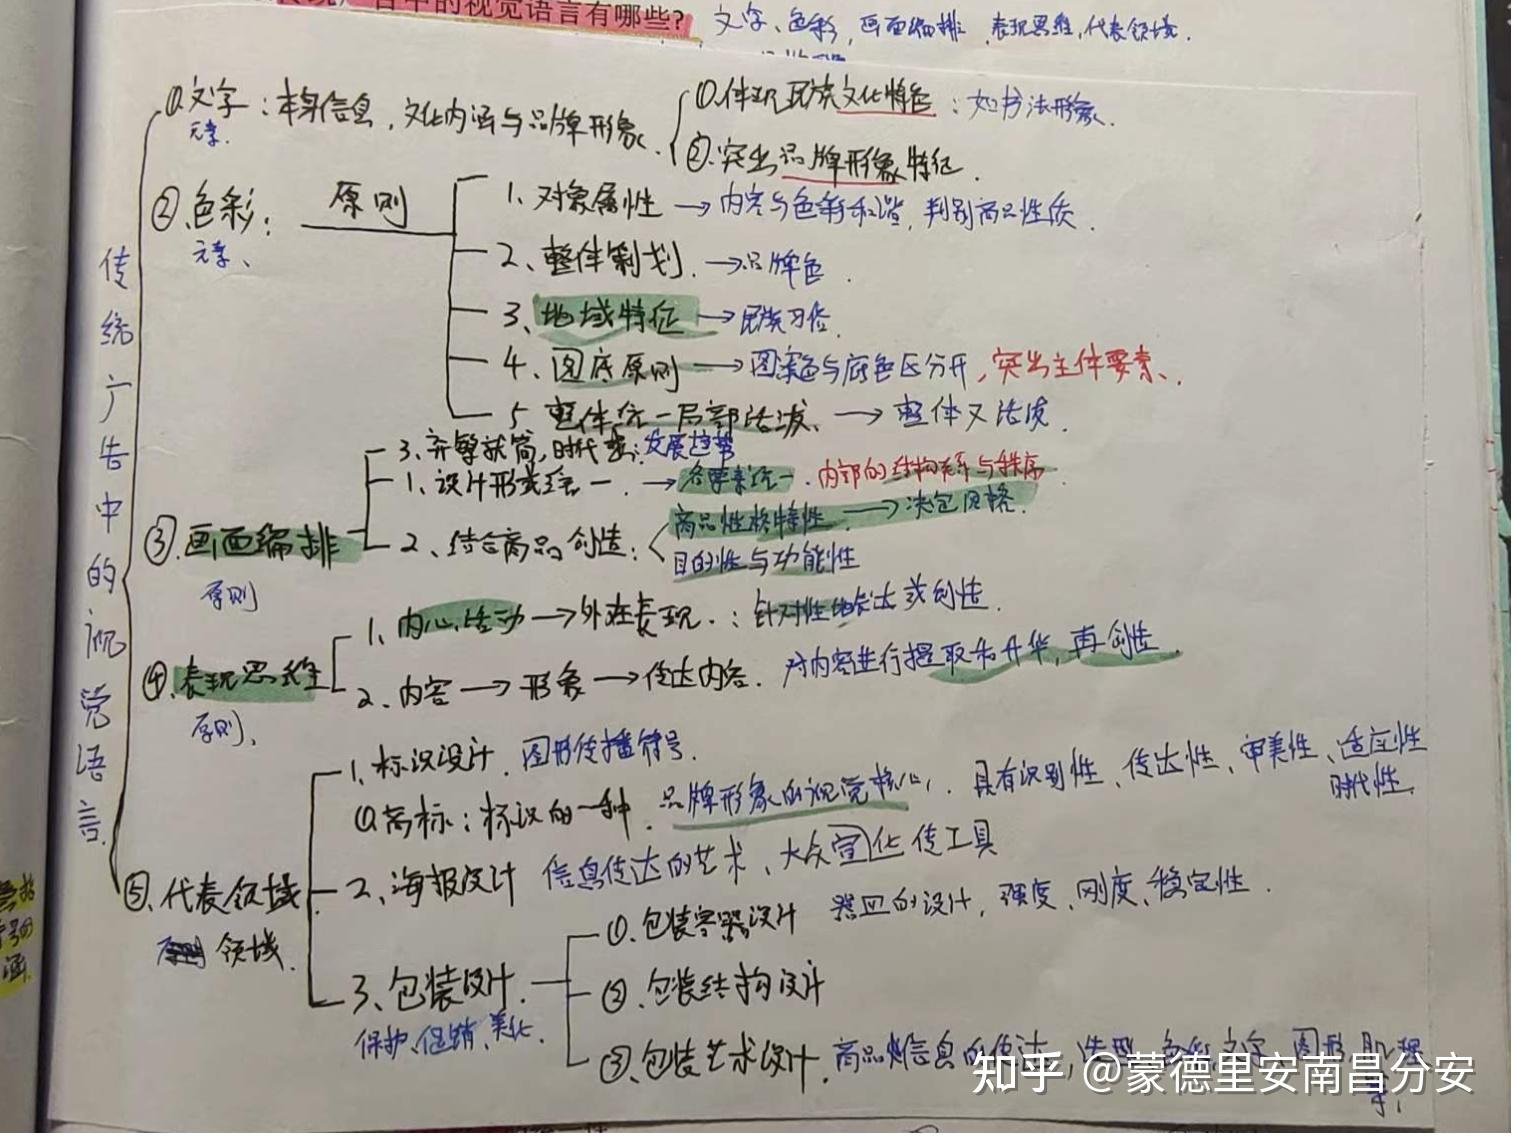 告中的视觉语言有哪些?
文字、色彩,画面编排 表现思维,代表领域.
传统广告中的视觉语言.
①.文字:本身信息,文化内涵与品牌形象.
元素.
①.体现民族文化特色:如书法形象.
②.突出品牌形象特征.
②.色彩: 原则
元素、
1、对象属性→内容与色彩和谐,判别商品性质.
2、整体策划.→品牌色.
3、地域特征→民族习俗.
4、图底原则→图案色与底色区分开,突出主体要素、.
5 整体统一局部活泼、→整体又活泼.
③.画面编排
原则
3、弃繁就简,时代 :发展趋势
1、设计形式统一.→各要素统一.内部的结构关系与秩序.
2、结合商品创造:
商品性格特性→决定风格.
目的性与功能性
④.表现思维
原则、
1、内心活动→外在表现.:针对性地表达或创造.
2、内容→形象→传达内容. 对内容进行提取和升华,再创造.
⑤、代表领域.
领域.
1、标识设计.图形传播符号.
①.商标:标识的一种.品牌形象的视觉核心,具有识别性、传达性、审美性、适应性
时代性.
2、海报设计 信息传达的艺术、大众宣传工具
3、包装设计.
保护、促销、美化.
①.包装容器设计 器皿的设计,强度、刚度、稳定性.
②.包装结构设计
③.包装艺术设计.商品 信息的传达,造型、色彩、文字、图形、肌理
等.
知乎 @蒙德里安南昌分安